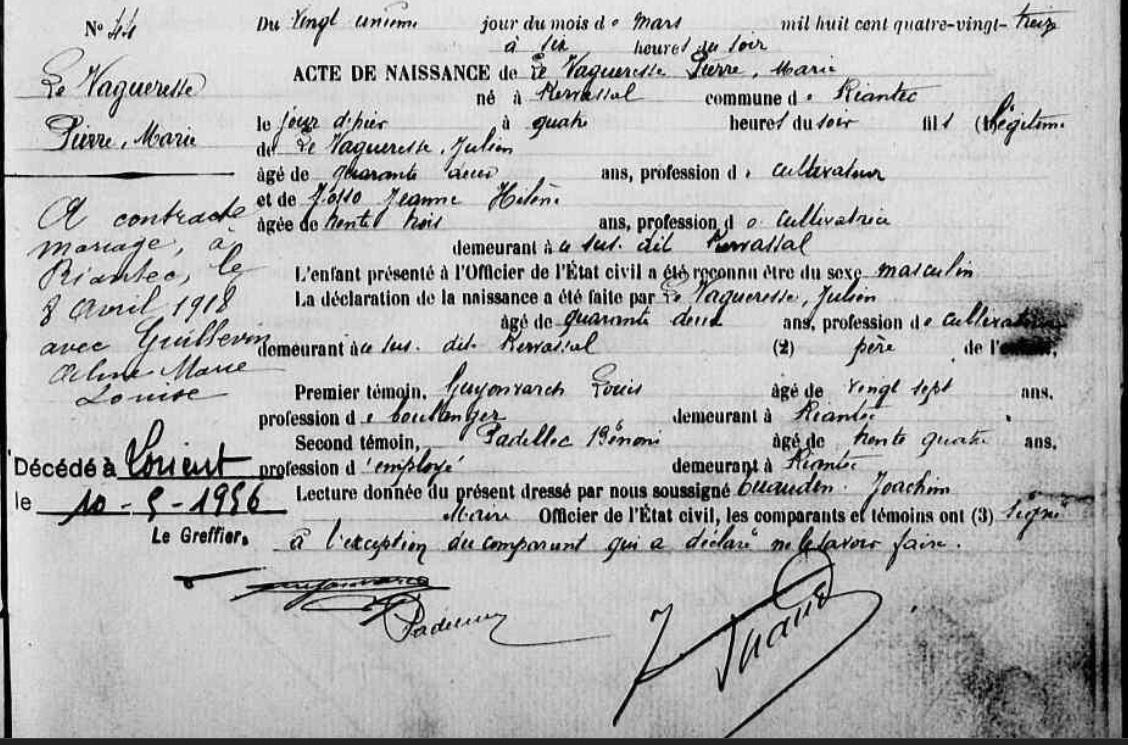 N° 44
Le Vagueresse
Pierre, Marie
A contracté
mariage, à
Riantec, le
8 Avril 1918
avec Guillevin
Marie
Louise
Décédé à Lorient
le 10-5-1956
Le Greffier,
Du Vingt unième jour du mois de Mars mil huit cent quatre-vingt-treize
à six heures du soir
ACTE DE NAISSANCE de Le Vagueresse Pierre, Marie
né à Kervassal commune de Riantec
le jour d'hier à quatre heures du soir fils (1) légitime
de Le Vagueresse, Julien
âgé de quarante deux ans, profession de cultivateur
et de Jeanne Hélène
âgée de trente trois ans, profession de cultivatrice
demeurant à u sus. dit Kervassal
L'enfant présenté à l'Officier de l'État civil a été reconnu être du sexe masculin
La déclaration de la naissance a été faite par Le Vagueresse, Julien
âgé de quarante deux ans, profession de cultivateur
demeurant à u sus. dit Kervassal (2) père de l'enfant.
Premier témoin, Guyonvarch Louis âgé de vingt sept ans.
profession de boulanger demeurant à Riantec
Second témoin, Padellec Bénoni âgé de trente quatre ans.
profession d'employé demeurant à Riantec
Lecture donnée du présent dressé par nous soussigné Joachim
Maire Officier de l'État civil, les comparants et témoins ont (3) signé
à l'exception du comparant qui a déclaré ne le savoir faire.